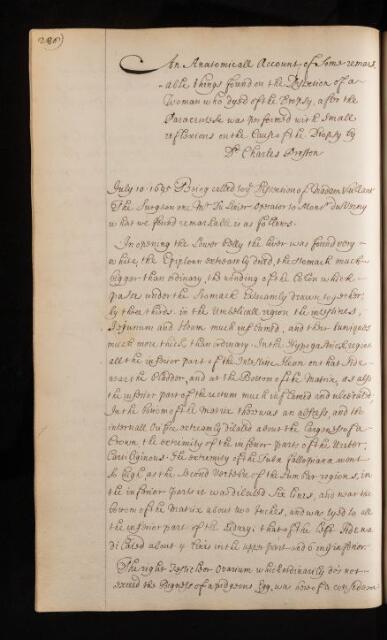 286)
An Anatomicall Account of Some remark
able things found on the Disection of a
Woman who dyed of the Dropsy, after the
Paracentese was performed with Small
reflexions on the Cause of the Dropsy by
Dr Charles Preston
July 10. 1695 Being called to the Disection of Madam
The Surgeon one Mr Du Operator to Monsr du Verny
what we found remarkable is as follows.
In opening the Lower Belly the liver was found very
white, the Epiploon extreamly dried, the Stomack much
bigger than ordinary, the winding of the Colon which
passes under the Stomack Extreamly drawn together,
by three thirds. in the Umbelicall region the intestines,
Jejunum and Ileon much inflamed, and their tuniques
much more thick than ordinary. In the Hypogastrick region
all the inferior part of the Intestine Ileon on that Side
near the Bladder, and at the Bottom of the Matrix, as also
the inferior part of the rectum much inflamed and ulcerated;
In the bottom of the Matrix there was an abscess, and the
internall Orifice extreamly dilated about the Largeness of a
Crown the extremity of the inferior parts of the Ureter,
Cartiliginous. The extremity of the Tuba fallopiana went
so high, as the Second Vertebre of the Lumbar regions, in
the inferior parts it was dilated Six lines, also near the
bottom of the Matrix about two Inches, and was tyed to all
the inferior part of the Kidney; that of the left Side was
dilated about 4 lines in the upper part and 6 in inferior.
The right Testicle or Ovarium which ordinarily does not
exceed the Bigness of a pidgeons Egg, was here of a considerab